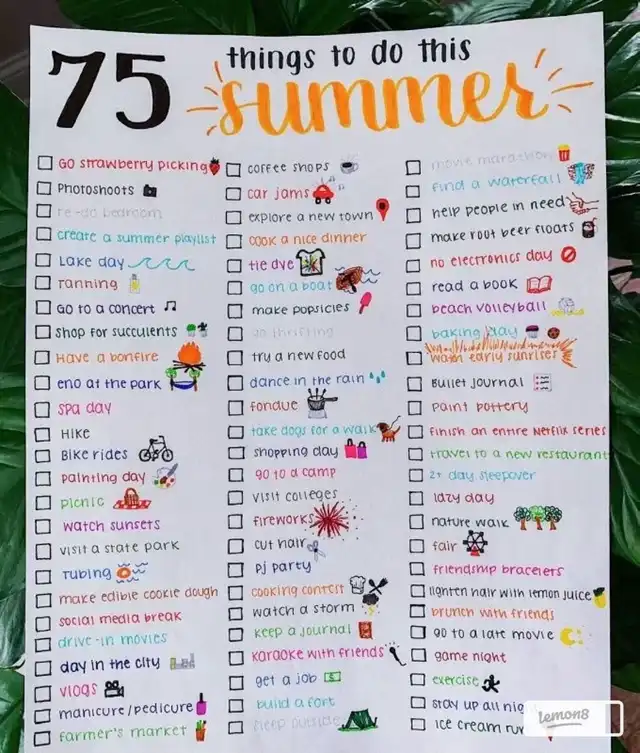 75
things to do this
summer
Go strawberry picking
Photoshoots
re-do bedroom
create a summer playlist
Lake day
Tanning
Go to a concert
Shop for succulents
Have a bonfire
eno at the park
spa day
Hike
Bike rides
painting day
picnic
watch sunsets
visit a state park
Tubing
make edible cookie dough
social media break
drive-in movies
day in the city
vlogs
manicure/pedicure
farmer's market
coffee shops
car jams
explore a new town
cook a nice dinner
tie dye
go on a boat
make popsicles
go thrifting
try a new food
dance in the rain
fondue
take dogs for a walk
shopping day
go to a camp
visit colleges
fireworks
cut hair
pj party
cooking contest
watch a storm
keep a journal
karaoke with friends
get a job
build a fort
sleep outside
movie marathon
find a waterfall
help people in need
make root beer floats
no electronics day
read a book
beach volleyball
baking day
watch early sunrises
Bullet journal
paint pottery
finish an entire Netflix series
travel to a new restaurant
2+ day sleepover
lazy day
nature walk
fair
friendship bracelets
lighten hair with lemon juice
brunch with friends
go to a late movie
game night
exercise
stay up all
ice cream
lemon8